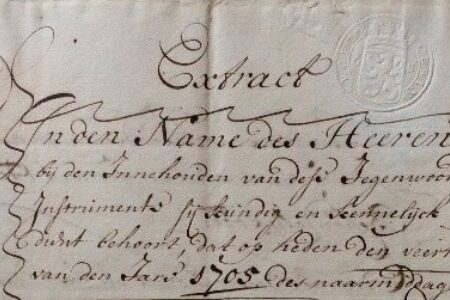 Extract
In den Name des Heeren
bij den Innehouden van dese Tegenwoor
Instruments sij kundig en kennelijck
dient behoort, dat op heden den veert
van den Jare 1705 des naarmiddag